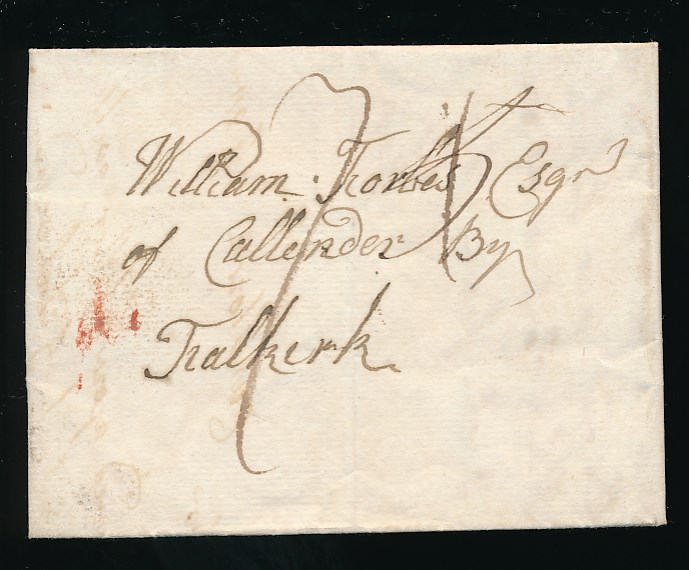 William Forbes Esqr
of Callender By
Falkirk